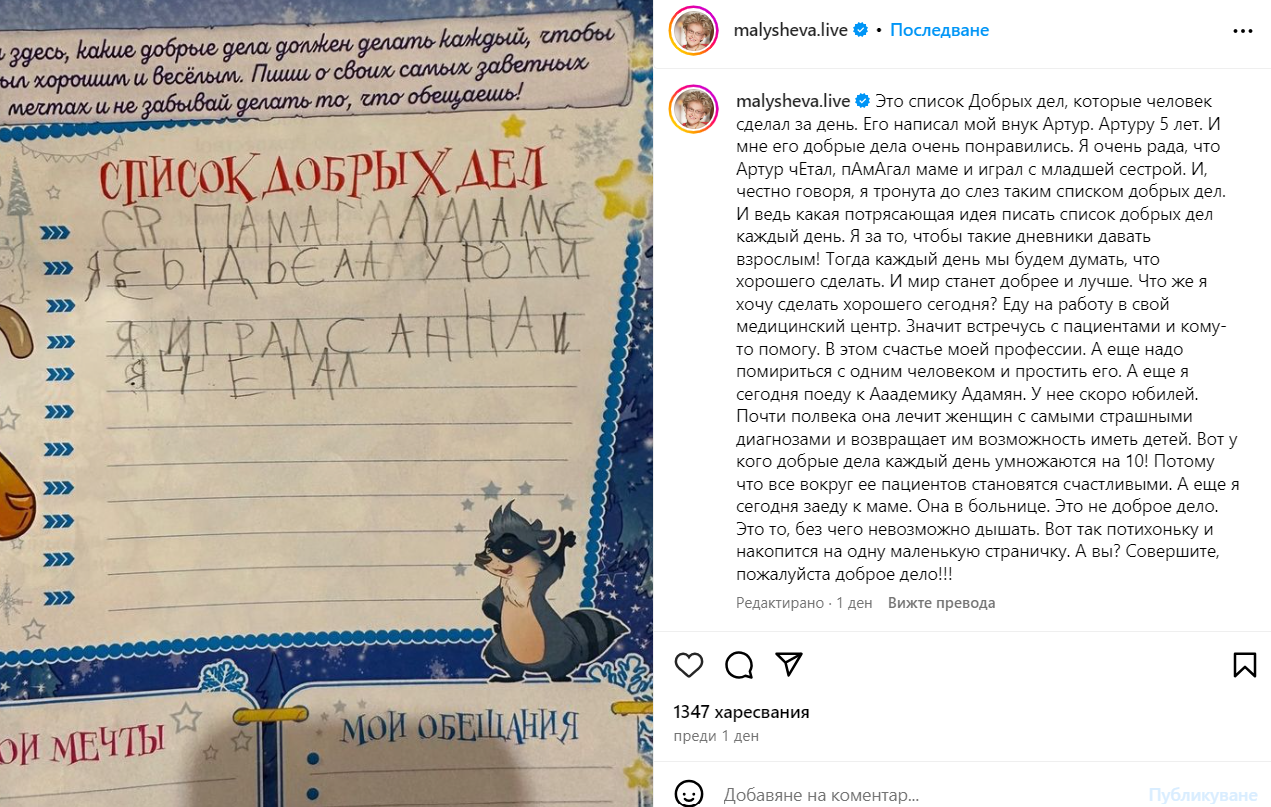 здесь, какие добрые дела должен делать каждый, чтобы
был хорошим и весёлым. Пиши о своих самых заветных
мечтах и не забывай делать то, что обещаешь!
СПИСОК ДОБРЫХ ДЕЛ
ПАМАГАЛ МАМЕ
Я УРОКИ
Я ИГРАЛ С АННАЙ
Я ЧЕТАЛ
МЕЧТЫ
МОИ ОБЕЩАНИЯ
malysheva.live • Последване
malysheva.live Это список Добрых дел, которые человек
сделал за день. Его написал мой внук Артур. Артуру 5 лет. И
мне его добрые дела очень понравились. Я очень рада, что
Артур чЕтал, пАмАгал маме и играл с младшей сестрой. И,
честно говоря, я тронута до слез таким списком добрых дел.
И ведь какая потрясающая идея писать список добрых дел
каждый день. Я за то, чтобы такие дневники давать
взрослым! Тогда каждый день мы будем думать, что
хорошего сделать. И мир станет добрее и лучше. Что же я
хочу сделать хорошего сегодня? Еду на работу в свой
медицинский центр. Значит встречусь с пациентами и кому-
то помогу. В этом счастье моей профессии. А еще надо
помириться с одним человеком и простить его. А еще я
сегодня поеду к Ааадемику Адамян. У нее скоро юбилей.
Почти полвека она лечит женщин с самыми страшными
диагнозами и возвращает им возможность иметь детей. Вот у
кого добрые дела каждый день умножаются на 10! Потому
что все вокруг ее пациентов становятся счастливыми. А еще я
сегодня заеду к маме. Она в больнице. Это не доброе дело.
Это то, без чего невозможно дышать. Вот так потихоньку и
накопится на одну маленькую страничку. А вы? Совершите,
пожалуйста доброе дело!!!
Редактирано · 1 ден Вижте превода
1347 харесвания
преди 1 ден
Добавяне на коментар...
Публикуване